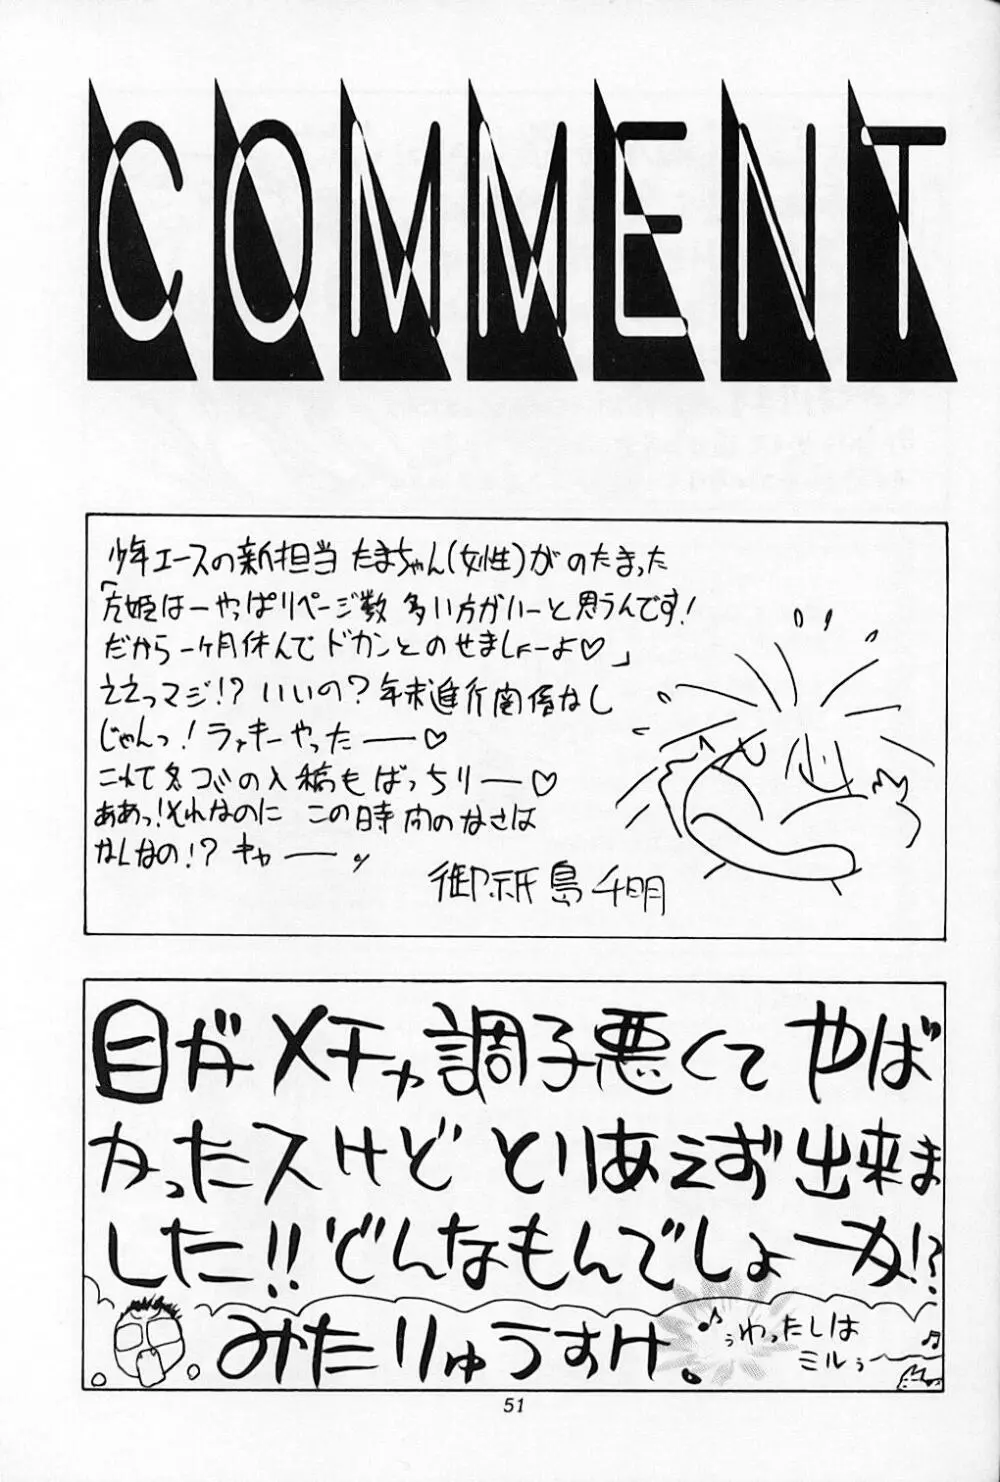 COMMENT
少年エースの新担当 たまちゃん(女性)がのたまった
「左姫はーやっぱりページ数 多い方がいーと思うんです!
だから一ヶ月休んで ドカンとのせましょーよ♡」
ええっマジ!? いいの? 年末進行関係なし
じゃんっ! ラッキーやったー♡
これで冬コミの入稿もばっちりー♡
ああっ!それなのに この時間のなさは
なんなの!? キャーッ
御祇島千明
目がメチャ調子悪くて やば
かったスけど とりあえず出来ま
した!! どんなもんでしょーか!?
みたりゅうすけ.
♪ぅわったしは
ミルぅ〜♫
51